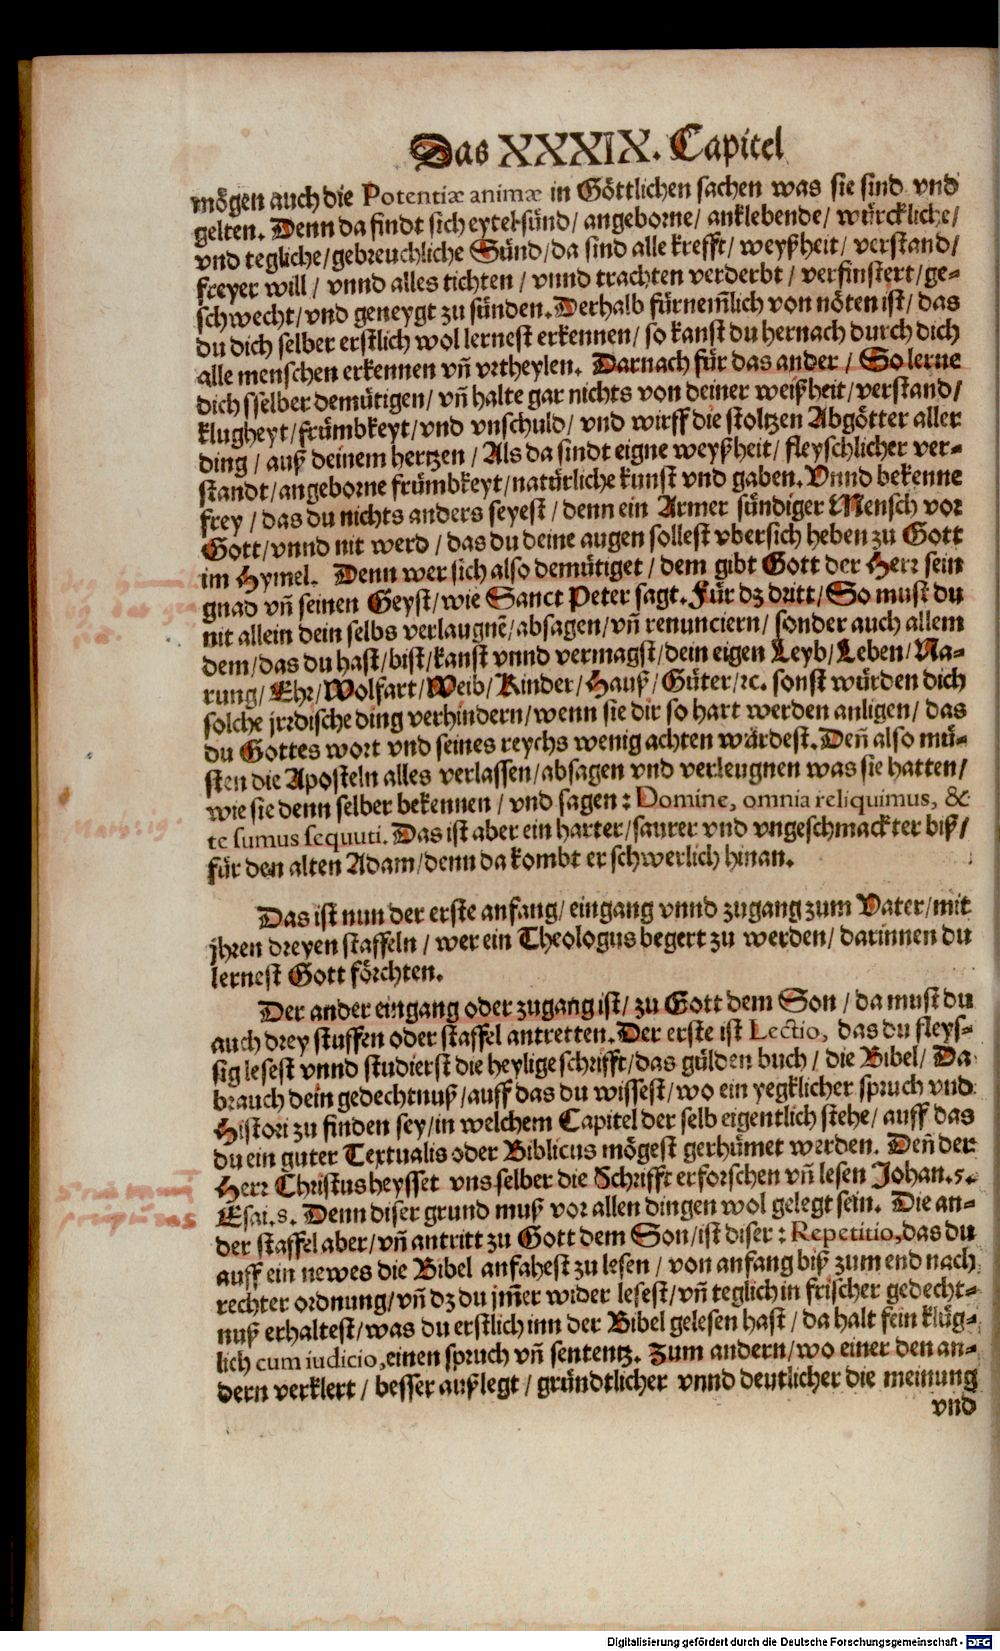 Das XXXIX. Capitel
mögen auch die Potentiæ animæ in Göttlichen sachen was sie sind vnd
gelten. Denn da findt sich eytel sünd/ angeborne/ anklebende/ würckliche/
vnd tegliche/ gebreuchliche Sünd/ da sind alle krefft/ weyßheit/ verstand/
freyer will/ vnnd alles tichten/ vnnd trachten verderbt/ verfinstert/ ge-
schwecht/ vnd geneygt zu sünden. Derhalb fürnem̃lich von nöten ist/ das
du dich selber erstlich wol lernest erkennen/ so kanst du hernach durch dich
alle menschen erkennen vñ vrtheylen. Darnach für das ander/ So lerne
dich sselber demütigen/ vñ halte gar nichts von deiner weißheit/ verstand/
klugheyt/ frümbkeyt/ vnd vnschuld/ vnd wirff die stoltzen Abgötter aller
ding/ auß deinem hertzen/ Als da sindt eigne weyßheit/ fleyschlicher ver-
standt/ angeborne frümbkeyt/ natürliche kunst vnd gaben. Vnnd bekenne
frey/ das du nichts anders seyest/ denn ein Armer sündiger Mensch vor
Gott/ vnnd nit werd/ das du deine augen sollest vbersich heben zu Gott
im Hymel. Denn wer sich also demütiget/ dem gibt Gott der Herr sein
gnad vñ seinen Geyst/ wie Sanct Peter sagt. Für dz dritt/ So must du
nit allein dein selbs verlaugnē/ absagen/ vñ renunciern/ sonder auch allem
dem/ das du hast/ bist/ kanst vnnd vermagst/ dein eigen Leyb/ Leben/ Na-
rung/ Ehr/ Wolfart/ Weib/ Kinder/ Hauß/ Güter/ ꝛc. sonst würden dich
solche jrrdische ding verhindern/ wenn sie dir so hart werden anligen/ das
du Gottes wort vnd seines reychs wenig achten würdest. Deñ also mü-
sten die Aposteln alles verlassen/ absagen vnd verleugnen was sie hatten/
wie sie denn selber bekennen/ vnd sagen: Domine, omnia reliquimus, &
te sumus sequuti. Das ist aber ein harter/ saurer vnd vngeschmackter biß/
für den alten Adam/ denn da kombt er schwerlich hinan.
Das ist nun der erste anfang/ eingang vnnd zugang zum Vater/ mit
jhren dreyen staffeln/ wer ein Theologus begert zu werden/ darinnen du
lernest Gott förchten.
Der ander eingang oder zugang ist/ zu Gott dem Son/ da must du
auch drey stuffen oder staffel antretten. Der erste ist Lectio, das du fleys-
sig lesest vnnd studierst die heylige schrifft/ das gülden buch/ die Bibel/ Da
brauch dein gedechtnuß/ auff das du wissest/ wo ein yegklicher spruch vnd
Histori zu finden sey/ in welchem Capitel der selb eigentlich stehe/ auff das
du ein guter Textualis oder Biblicus mögest gerhümet werden. Deñ der
Herr Christus heysset vns selber die Schrifft erforschen vñ lesen Johan. 5.
Esai. 8. Denn diser grund muß vor allen dingen wol gelegt sein. Die an-
der staffel aber/ vñ antritt zu Gott dem Son/ ist diser: Repetitio, das du
auff ein newes die Bibel anfahest zu lesen/ von anfang biß zum end nach
rechter ordnung/ vñ dz du jm̃er wider lesest/ vñ teglich in frischer gedecht-
nuß erhaltest/ was du erstlich inn der Bibel gelesen hast/ da halt fein klüg-
lich cum iudicio, einen spruch vñ sententz. Zum andern/ wo einer den an-
dern verklert/ besser außlegt/ gründtlicher vnnd deutlicher die meinung
vnd
Math: 19.
scripturas
Digitalisierung gefördert durch die Deutsche Forschungsgemeinschaft - DFG